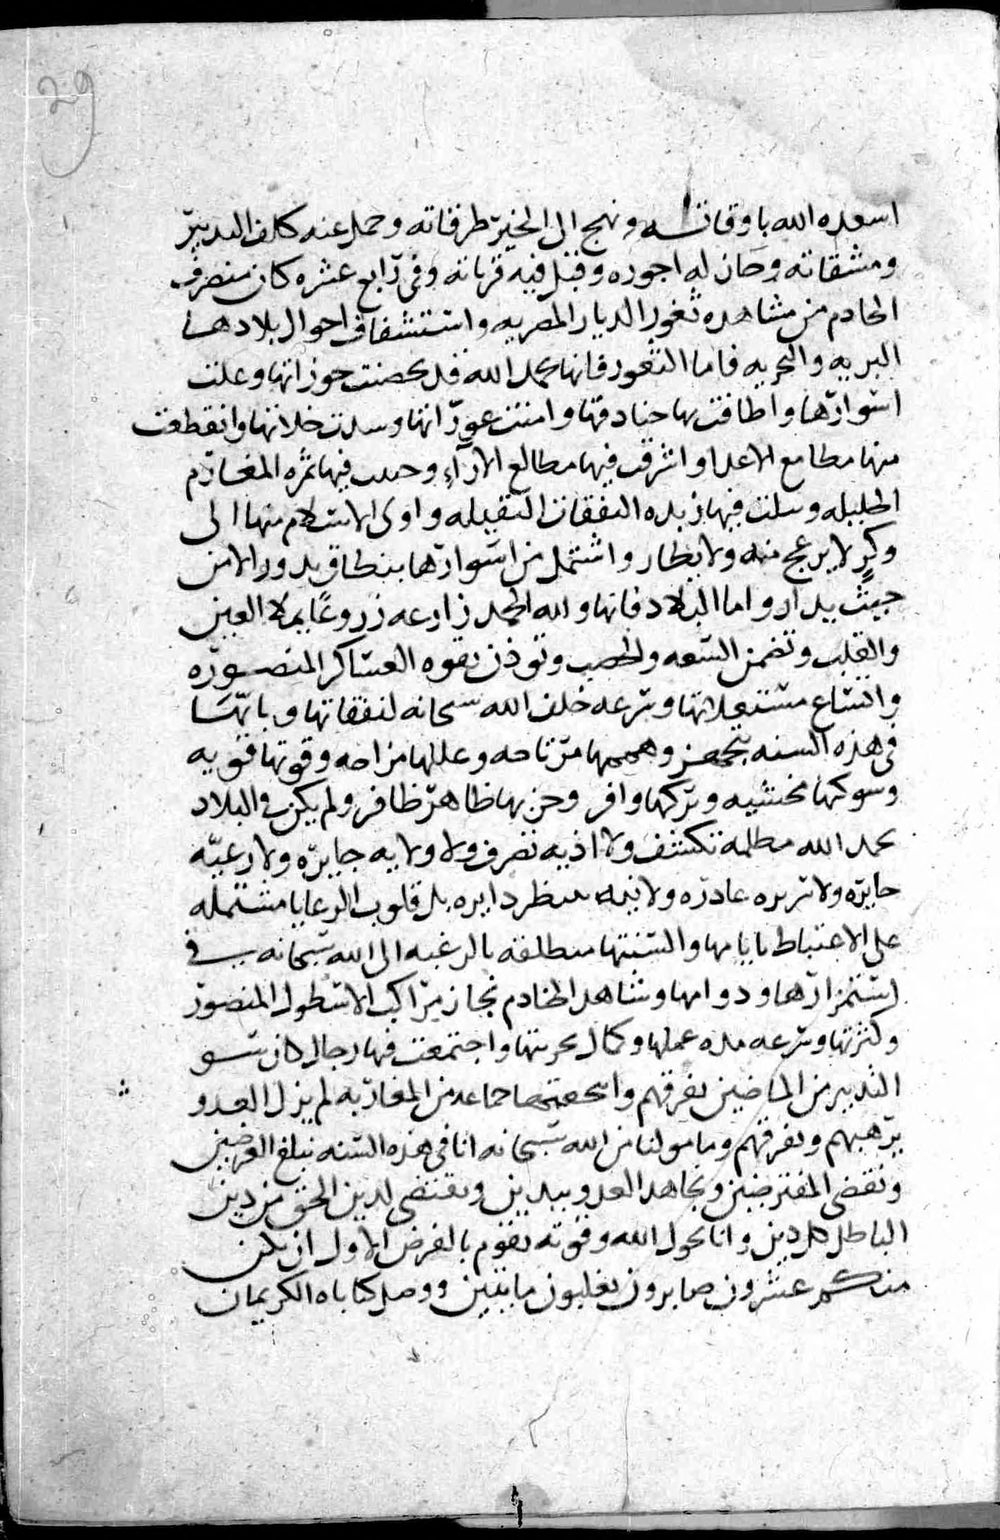 29
اسعده الله باوقاته ونهج الى الخير طرقاته وحمل عنه كلف التدبير
ومشقاته وصان له اجوره وقبل فيه قرباته وفى رابع عشره كان منصرف
الخادم من مشاهده ثغور الديار المصريه واستشفاف احوال بلادها
البريه والبحريه فاما الثغور فانها بحمد الله قد حصنت حوزاتها وعلت
اسوارها واطافت بها خنادقها وامنت عوراتها وسدت خلاتها وانقطعت
منها مطامع الاعدا واشرقت فيها مطالع الارآء وحلبت فيها ثمره المغارم
الجليله وسلت فيها زبده النفقات الثقيله واوى الاسلام منها الى
وكرٍ لا يزعج منه ولا يطار واشتمل من اسوارها بنطاق يدور الامن
حيث يدار واما البلاد فانها ولله الحمد زارعه زروعًا يملا العين
والقلب وتضمن السعه والخصب وتوذن بقوه العساكر المنصوره
واتساع مستغلاتها وسرعه خلف الله سبحانه لنفقاتها وباتها
فى هذه السنه بتجمعهز وهممها مرتاحه وعللها مزاحه وقوتها قويه
وشوكتها مخشيه وتركها وافر وحزبها ظاهر ظافر ولم يكن فى البلاد
بحمد الله مظلمه تكشف ولا اذيه تصرف ولا ولايه جايره ولا رعيه
حايره ولا سريره غادره ولا نيه بنظر دايره بل قلوب الرعايا مشتمله
على الاغتباط بايامها والسنتها منطلقه بالرغبه الى الله سبحانه فى
استمرارها ودوامها وشاهد الخادم نجاز مراكب الاسطول المنصور
وكثرتها وسرعه مده عملها وكمال بحريتها واجتمعت فيها رجال كان سو
التدبير من الماضين يفرقهم واستجمعتها جماعه من المغاربه لم يزل العدو
يرهبهم ويفرقهم ومامولنا من الله سبحانه انا فى هذه السنه نبلغ الغرضين
ونقضى المفترضين ونجاهد العدو بيدين ونقتضى لدين الحق من دين
الباطل كل دين وانا بحول الله وقوته نقوم بالفرض الاول ان يكن
منكم عشرون صابرون يغلبون مايتين ووصل كتاباه الكريمان